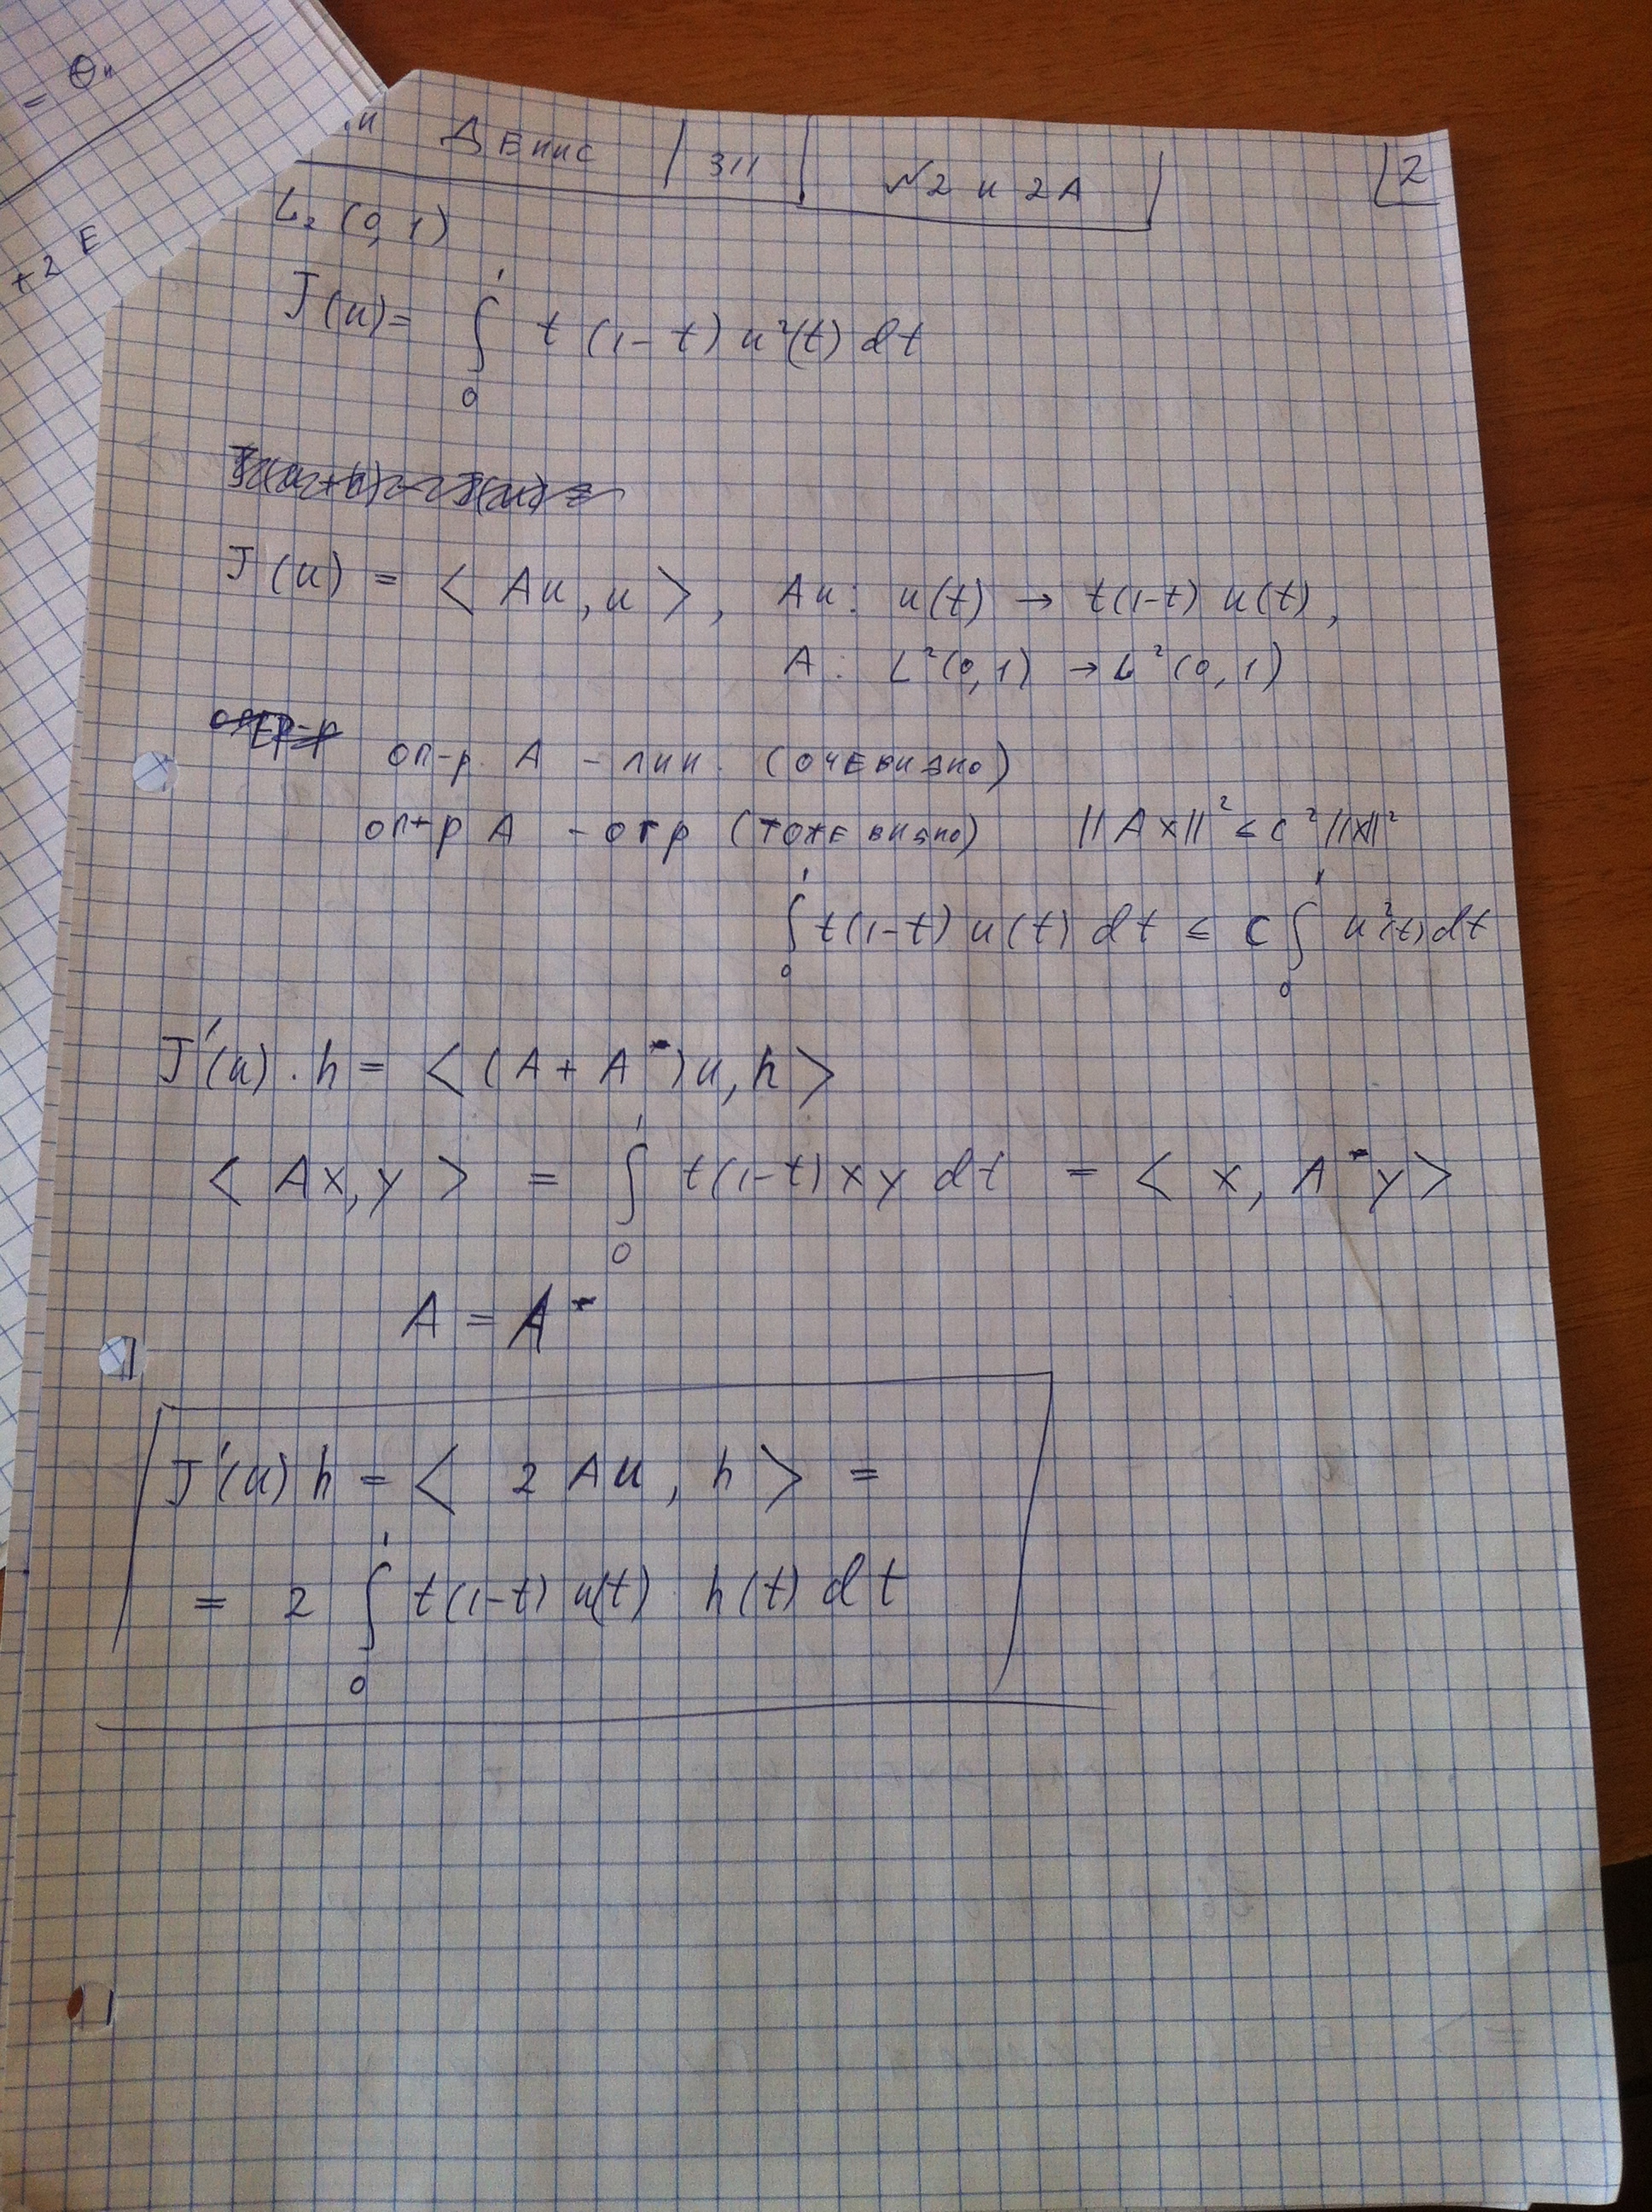 = θн
+2 E
Денис | 311 | №2 и 2А | 2
L₂ (0, 1)
J(u) = ∫₀¹ t (1-t) u²(t) dt
J(u) = < Au, u >, Au: u(t) → t(1-t) u(t),
A: L²(0, 1) → L²(0, 1)
оп-р. A - лин. (очевидно)
оп-р A - огр (тоже видно) ||Ax||² ≤ c² ||x||²
∫₀¹ t(1-t) u(t) dt ≤ C ∫₀¹ u²(t) dt
J'(u) · h = < (A + A*) u, h >
< Ax, y > = ∫₀¹ t(1-t) x y dt = < x, A* y >
A = A*
J'(u) h = < 2 Au, h > =
= 2 ∫₀¹ t(1-t) u(t) · h(t) dt